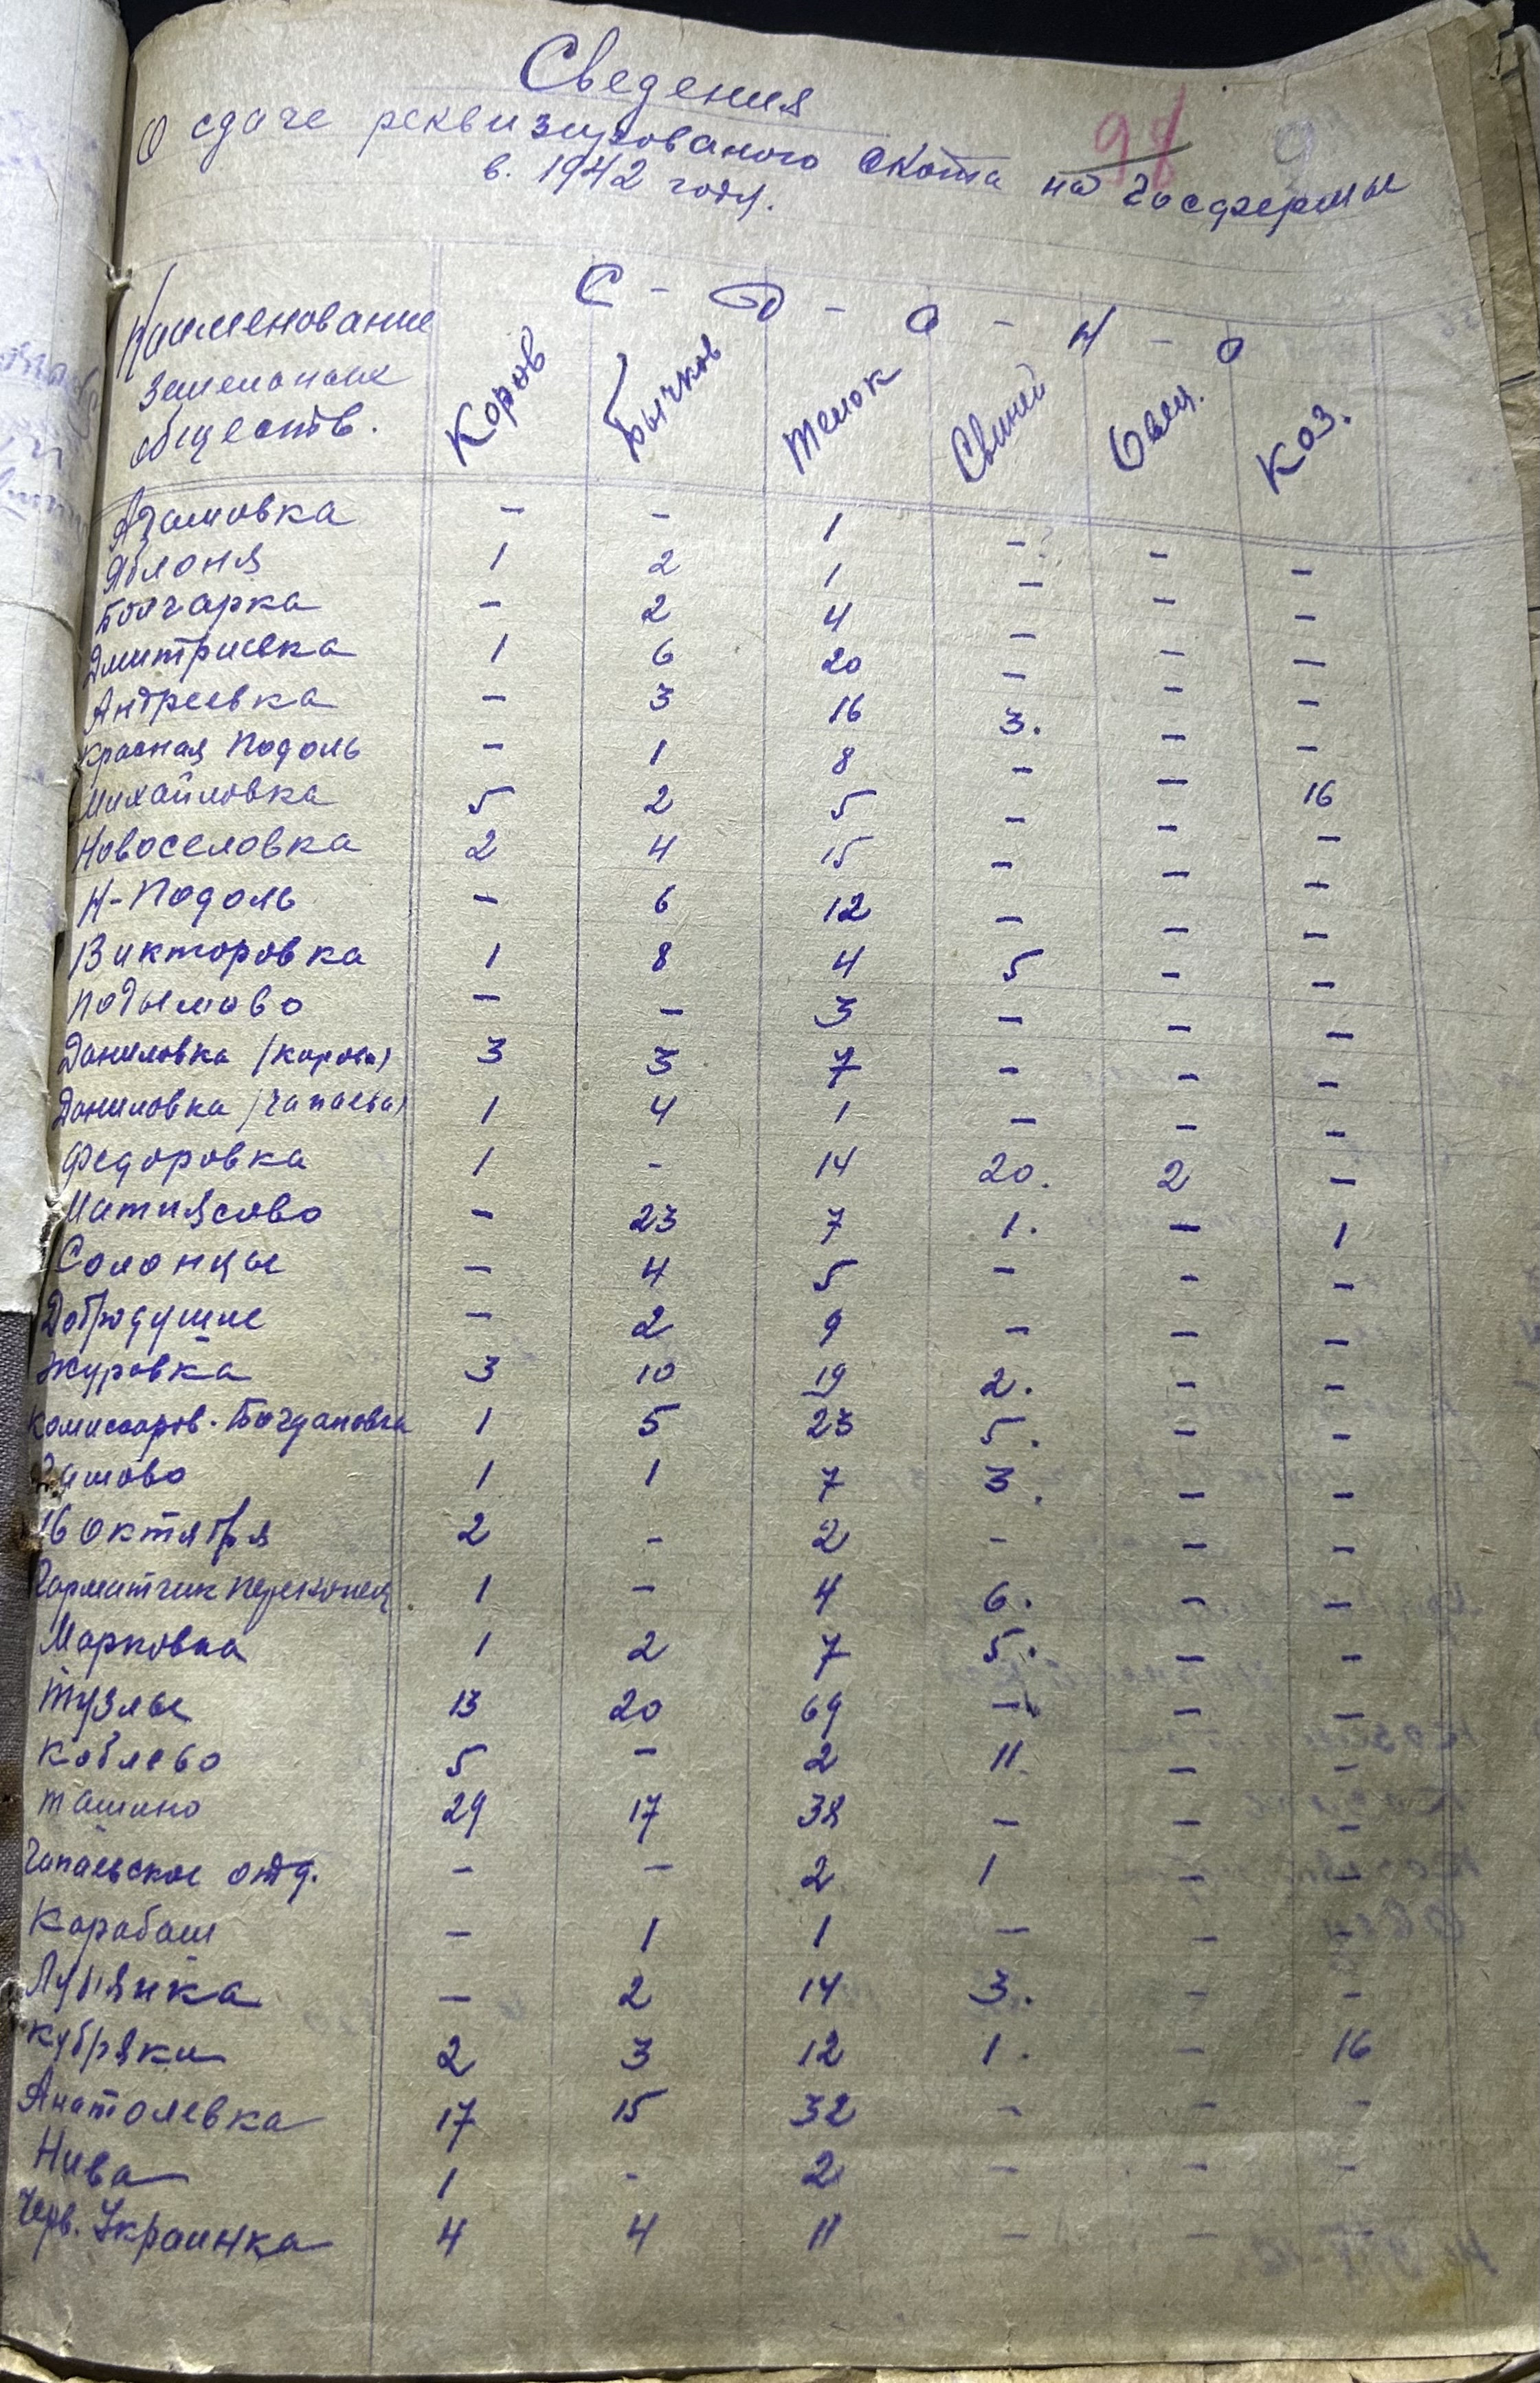 Сведения
98 9
О сдаче реквизированого скота на госфермы
в. 1942 году.
Наименование земельных обществ. С - Д - а - н - о
Коров Бычков Телок Свиней Овец. Коз.
Адамовка - - 1 - - -
Яблоня 1 2 1 - - -
Болгарка - 2 4 - - -
Дмитриевка 1 6 20 - - -
Андреевка - 3 16 3. - -
Красная Подоль - 1 8 - - 16
Михайловка 5 2 5 - - -
Новоселовка 2 4 15 - - -
Н-Подоль - 6 12 - - -
Викторовка 1 8 4 5 - -
Подымово - - 3 - - -
Даниловка (Карова) 3 3 7 - - -
Даниловка (Чапаева) 1 4 1 - - -
Федоровка 1 - 14 20. 2 -
Матиясово - 23 7 1. - 1
Солонцы - 4 5 - - -
Добродушие - 2 9 - - -
Журовка 3 10 19 2. - -
Комиссаров. Богдановка 1 5 23 5. - -
1 1 7 3. - -
16 Октября 2 - 2 - - -
1 - 4 6. - -
Марковка 1 2 7 5. - -
Тузлы 13 20 69 - - -
Коблево 5 - 2 11 - -
Ташино 29 17 38 - - -
Чапаевское отд. - - 2 1 - -
Карабаш - 1 1 - - -
Лубянка - 2 14 3. - -
Кубряки 2 3 12 1. - 16
Анатолевка 17 15 32 - - -
Нива 1 - 2 - - -
Черв. Украинка 4 4 11 - -